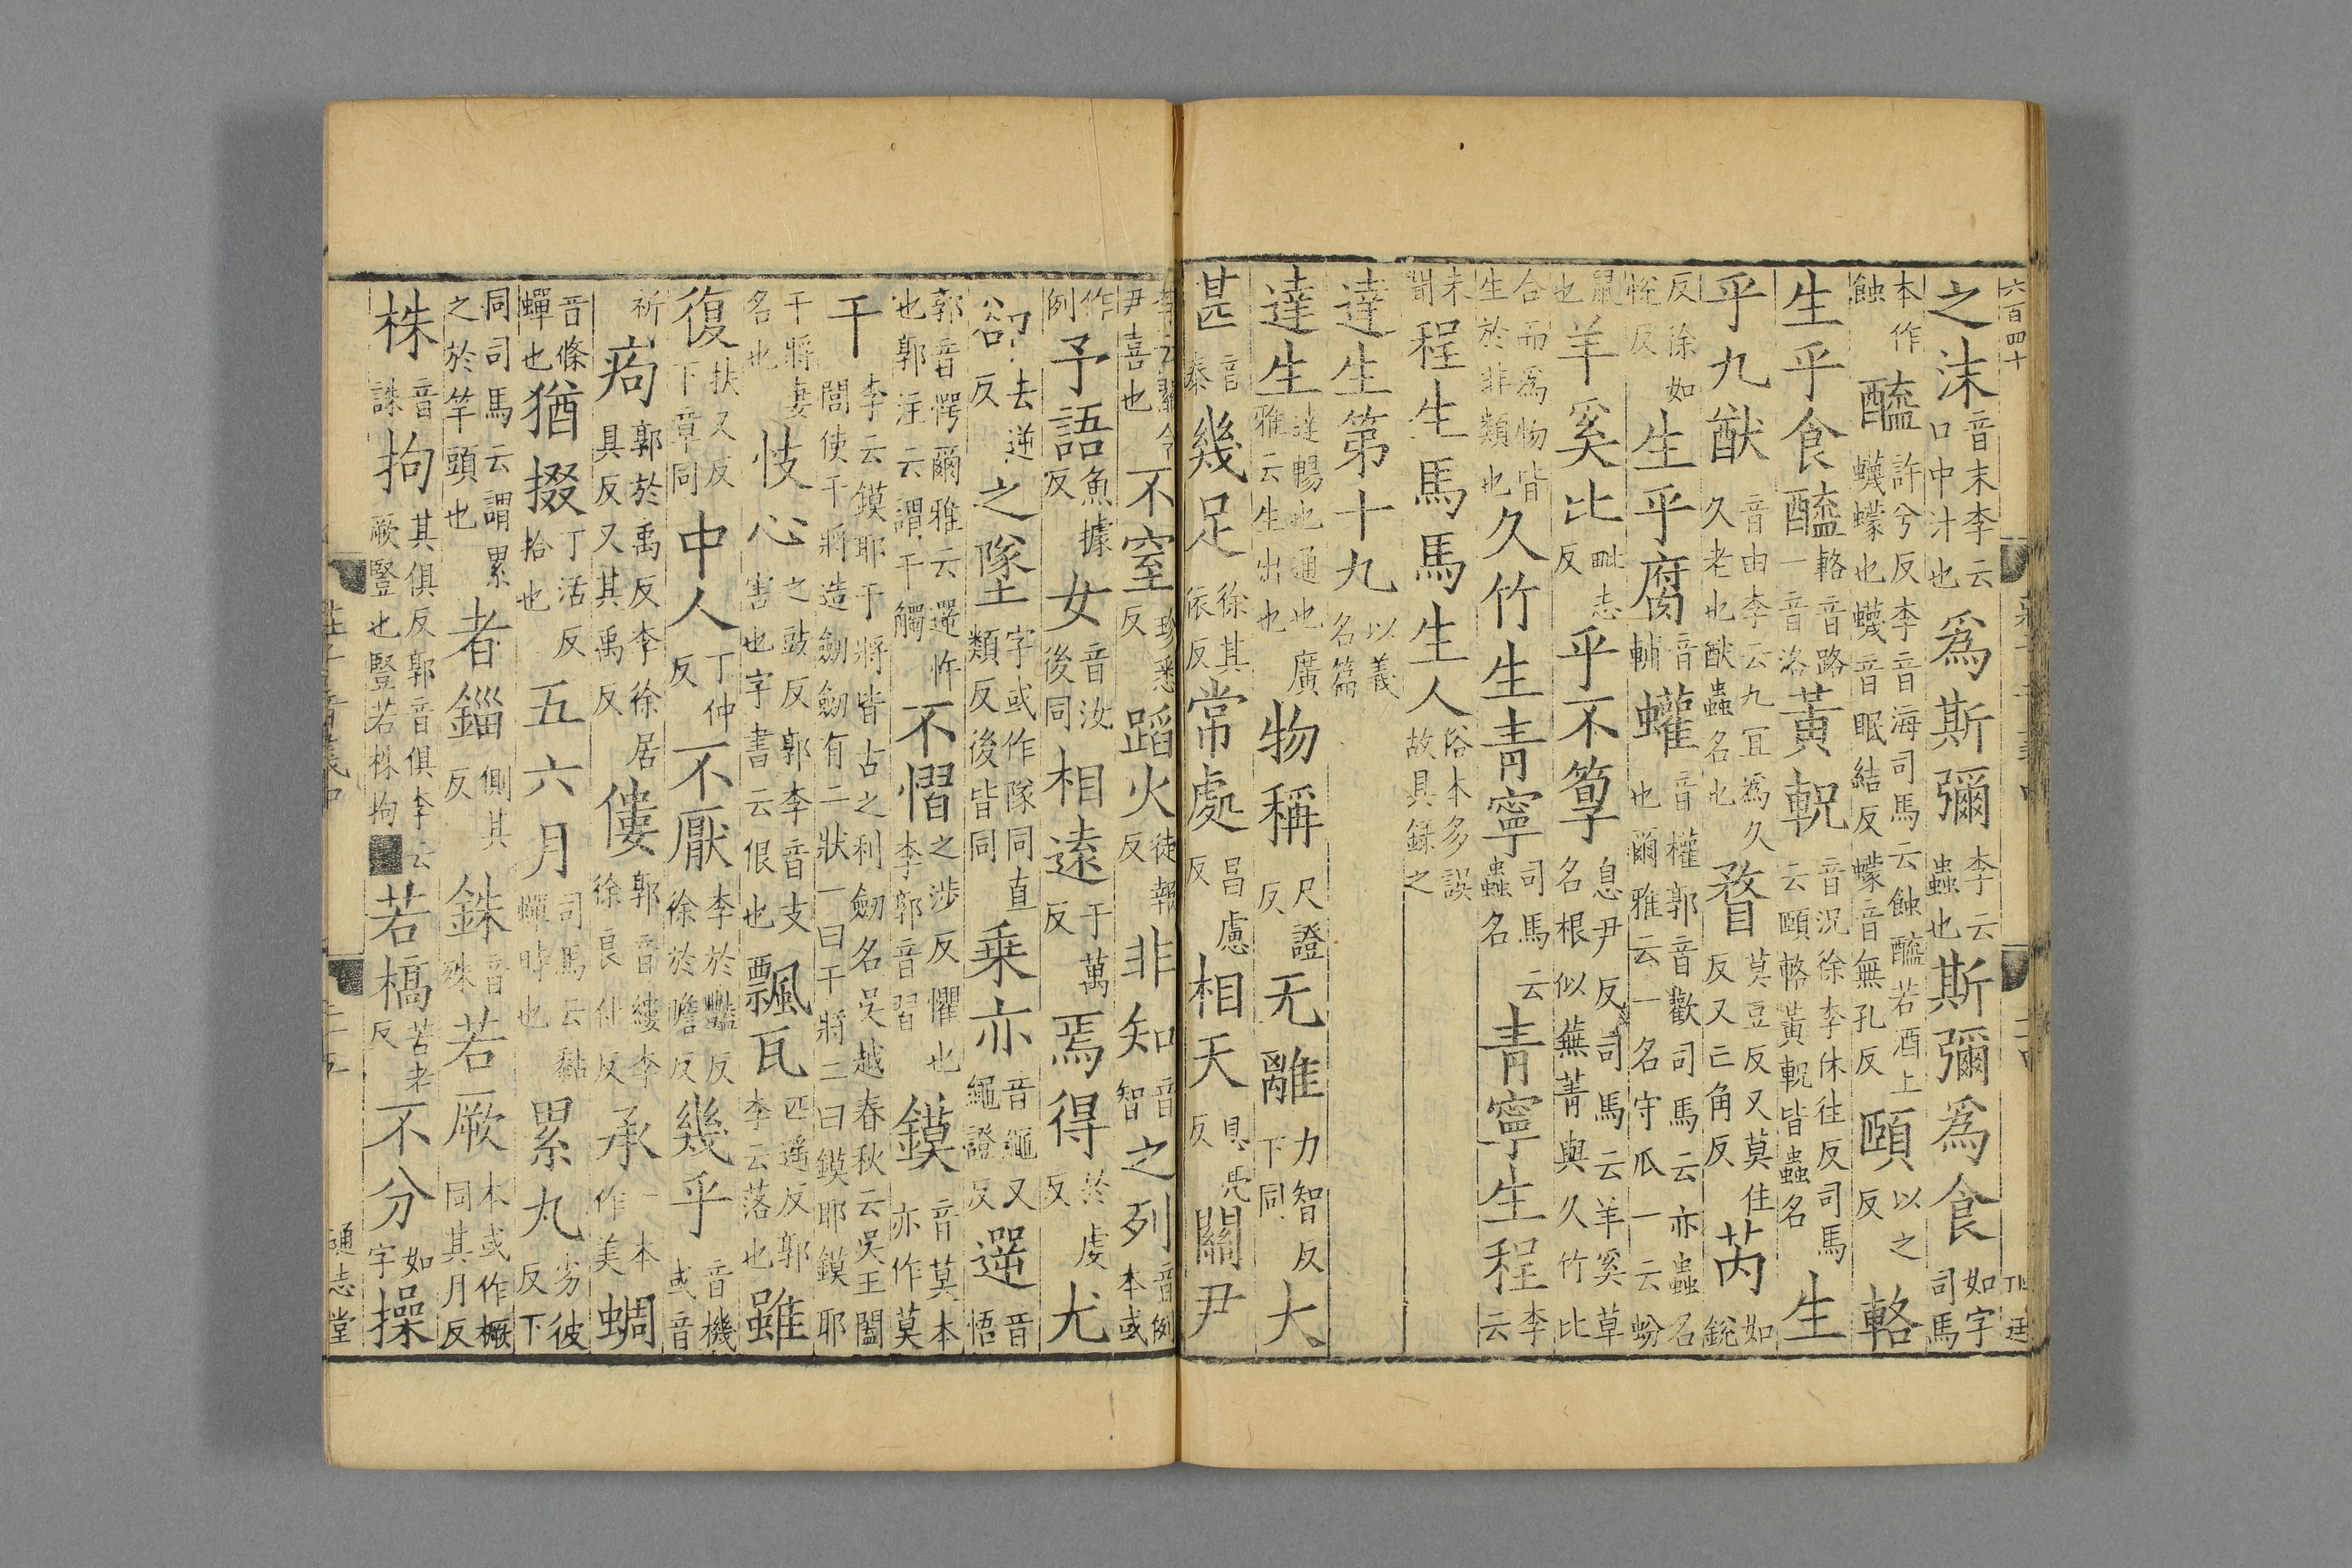 六百四十
之沫音末李云口中汁也爲斯彌李云蟲也斯彌爲食如字司馬
本作蝕醯許兮反李音海司馬云蝕醯若酒上蠛蠓也蠛音眠結反蠓音無孔反頤以之反輅
生乎食醯輅音路一音洛黃軦音況徐李休往反司馬云頤輅黃軦皆蟲名生
乎九猷音由李云九宜爲久久老也猷蟲名也瞀莫豆反又莫住反又亡角反芮如銳
反徐如悅反生乎腐音輔蠸音權郭音歡司馬云亦蟲名也爾雅云一名守瓜一云蚡
鼠也羊奚比毗志反乎不箰息尹反司馬云羊奚草名根似蕪菁與久竹比
合而爲物皆生於非類也久竹生青寧司馬云蟲名青寧生程李云
未聞程生馬馬生人俗本多誤故具錄之
達生第十九以義名篇
達生達暢也通也廣雅云生出也物稱尺證反无離力智反下同大
甚音泰幾足徐其依反常處昌慮反相天息亮反關尹
李云關令尹喜也不窒珍悉反蹈火徒報反非知音智之列音例本或
作例予語魚據反女音汝後同相遠于萬反焉得於虔反尤
郤去逆反之墜字或作隊同直類反後皆同乗亦音繩又繩證反遻音悟
郭音愕爾雅云遻忤也郭注云謂干觸不慴之涉反懼也李郭音習鏌音莫本亦作莫
干李云鏌耶干將皆古之利劒名吳越春秋云吳王闔閭使干將造劒劒有二狀一曰干將二曰鏌耶鏌耶
干將妻名也忮心之豉反郭李音支害也字書云佷也飄瓦匹遙反郭李云落也雖
復扶又反下章同中人丁仲反不厭李於豔反徐於瞻反幾乎音機或音
祈痀郭於禹反李徐居具反又其禹反僂郭音縷李徐良付反承一本作美蜩
音條蟬也猶掇丁活反拾也五六月司馬云黏蟬時也累丸劣彼反下
同司馬云謂累之於竿頭也者錙側其反銖音殊若厥本或作橛同其月反
株音誅拘其俱反郭音俱李云厥豎也豎若株拘若槁苦老反不分如字操
通志堂